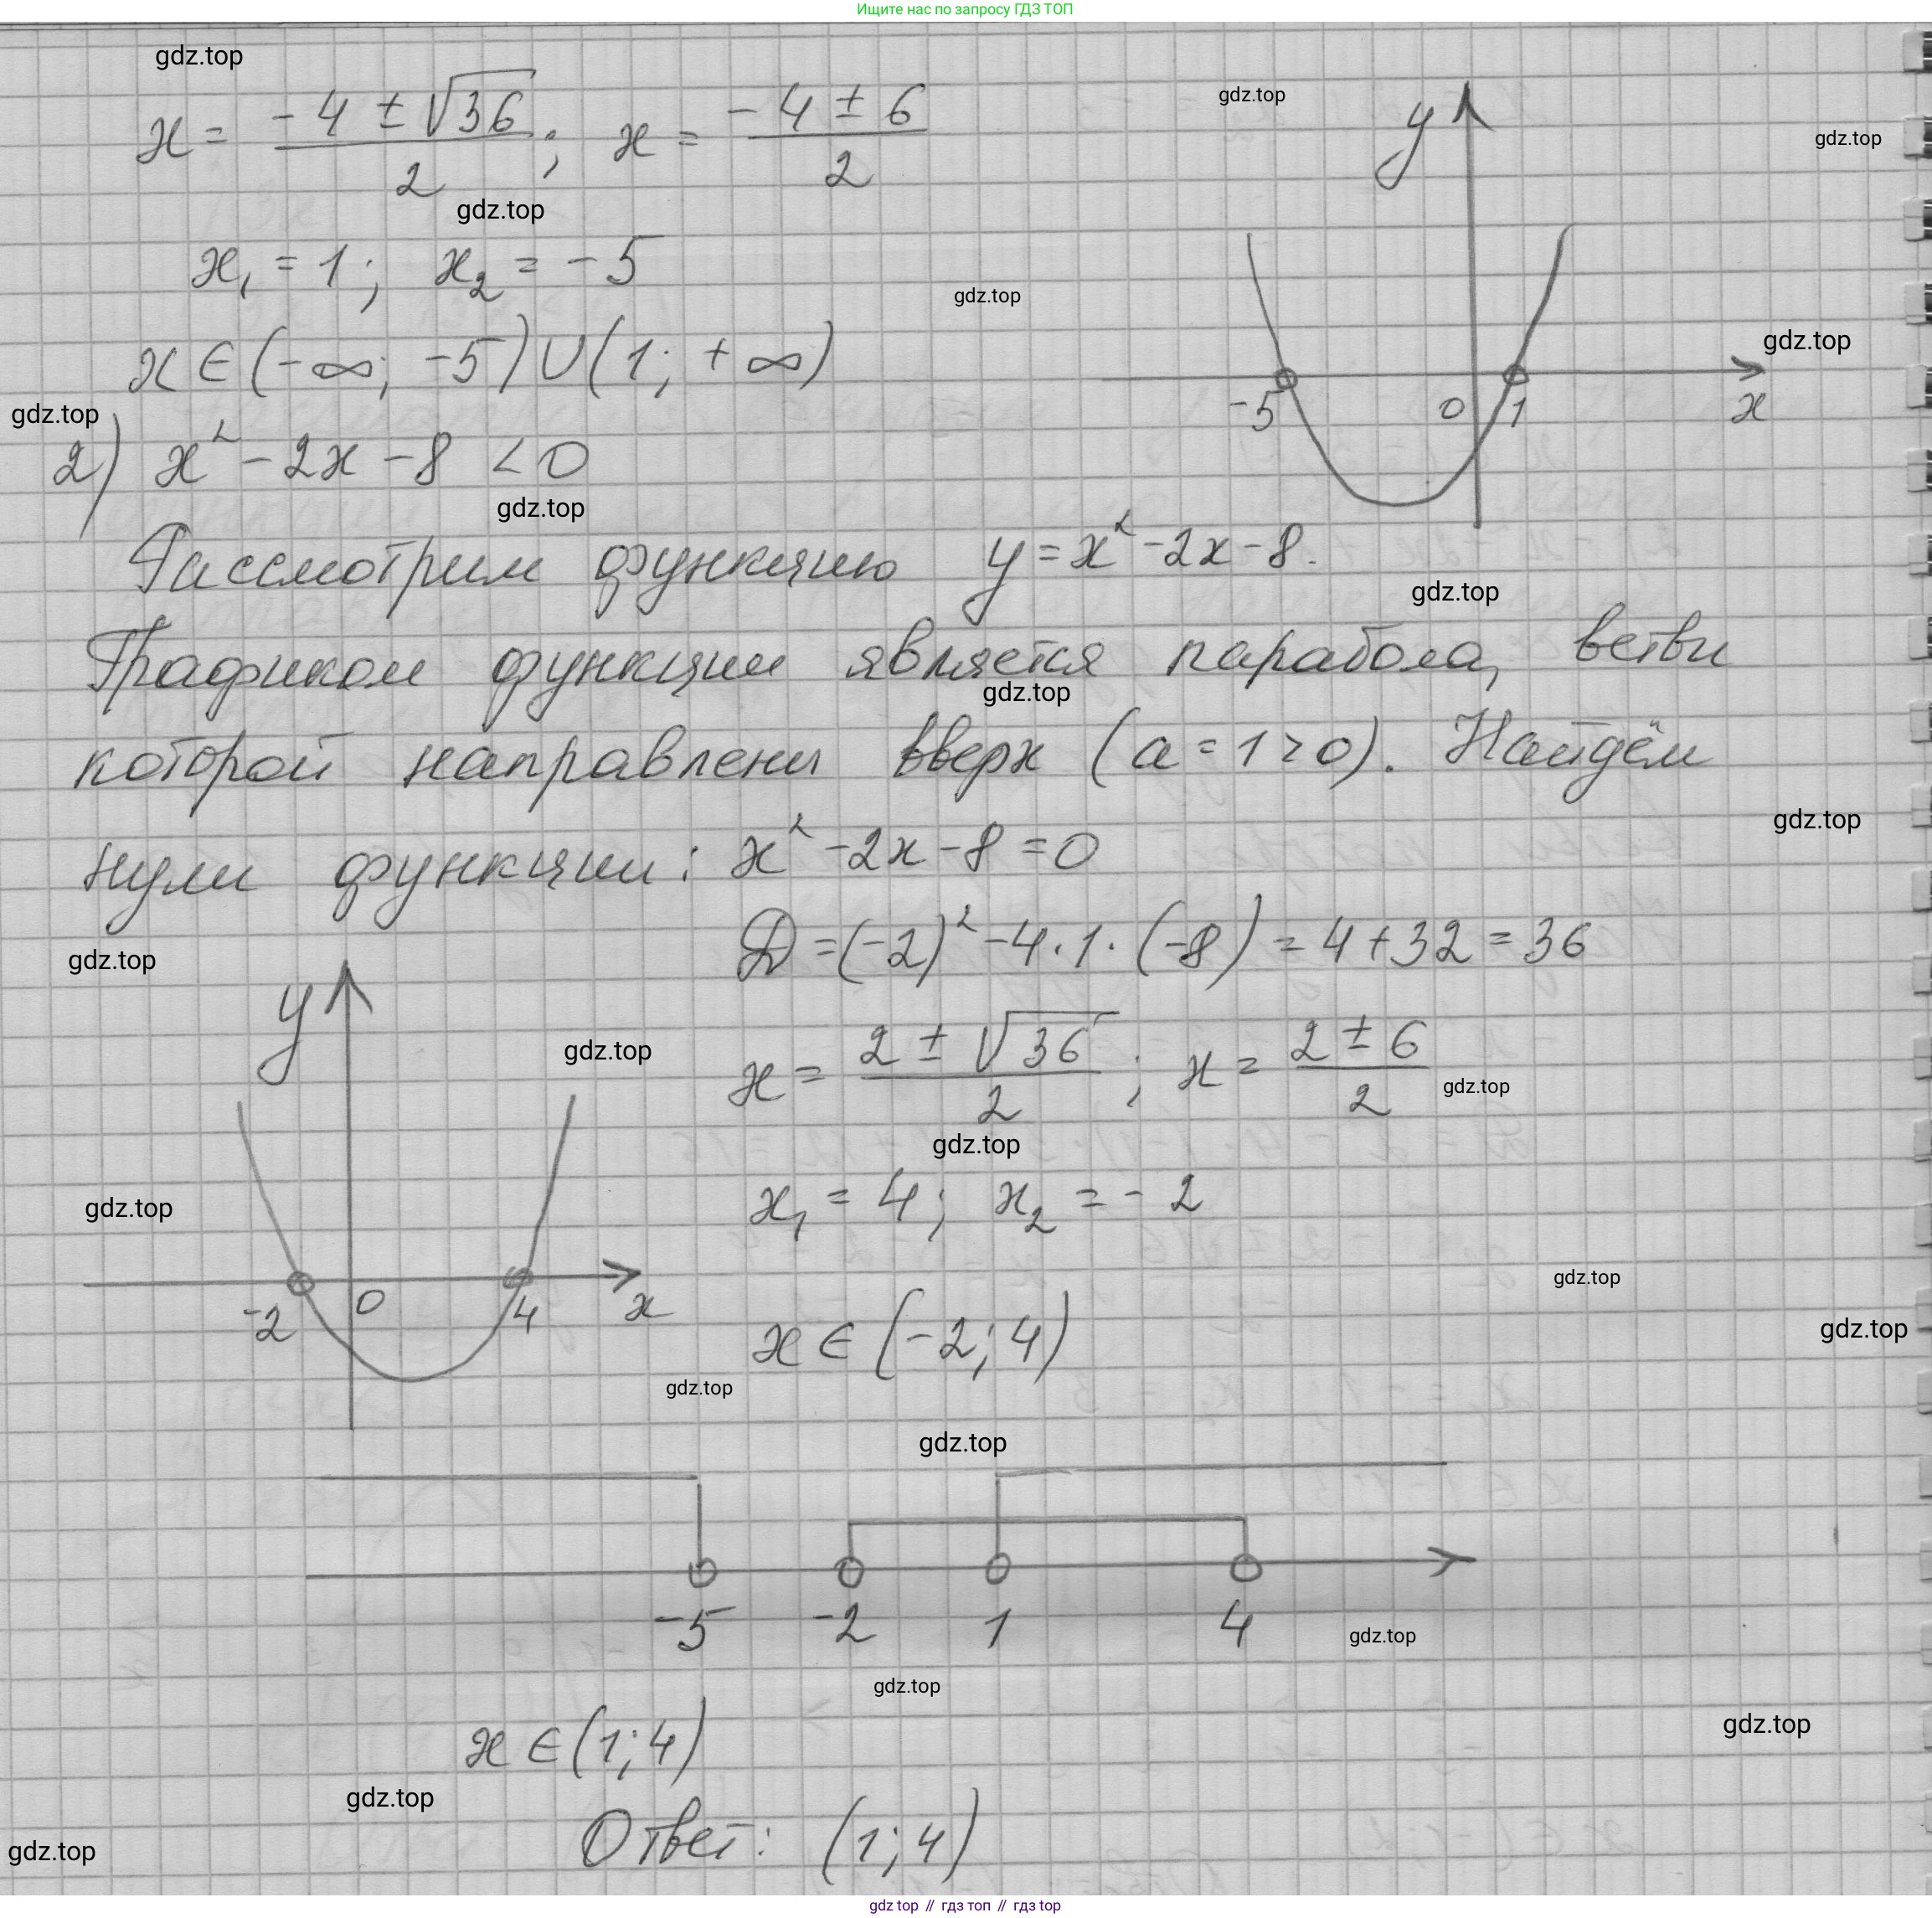 Ищите нас по запросу ГДЗ ТОП
gdz.top
gdz.top
gdz.top
x = (-4 ± √36)/2 ; x = (-4 ± 6)/2
y
gdz.top
x₁ = 1 ; x₂ = -5
gdz.top
gdz.top
x ∈ (-∞; -5) ∪ (1; +∞)
-5 0 1 x
gdz.top
2) x² - 2x - 8 < 0
gdz.top
Рассмотрим функцию y = x² - 2x - 8.
gdz.top
Графиком функции является парабола, ветви
gdz.top
которой направлены вверх (a = 1 > 0). Найдём
gdz.top
нули функции: x² - 2x - 8 = 0
D = (-2)² - 4 · 1 · (-8) = 4 + 32 = 36
gdz.top
y
gdz.top
x = (2 ± √36)/2 ; x = (2 ± 6)/2
gdz.top
gdz.top
x₁ = 4 ; x₂ = -2
gdz.top
gdz.top
-2 0 4 x
gdz.top
x ∈ (-2; 4)
gdz.top
gdz.top
-5 -2 1 4
gdz.top
gdz.top
gdz.top
x ∈ (1; 4)
gdz.top
Ответ: (1; 4)
gdz.top
gdz top // гдз топ // гдз top